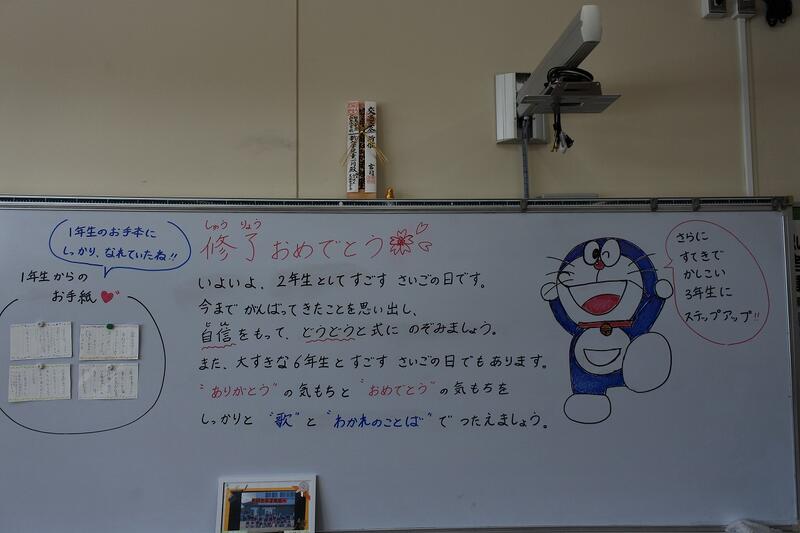 交通安全祈願
1年生のお手本に
しっかり、なれていたね!!
1年生からの
お手紙
しゅう りょう
修了おめでとう
いよいよ、2年生としてすごす さいごの日です。
今まで がんばってきたことを思い出し、
じ しん
自信をもって、どうどうと式に のぞみましょう。
また、大すきな6年生と すごす さいごの日でもあります。
"ありがとう"の気もちと"おめでとう"の気もちを
しっかりと "歌"と"わかれのことば"で つたえましょう。
さらに
すてきで
かしこい
3年生に
ステップアップ!!